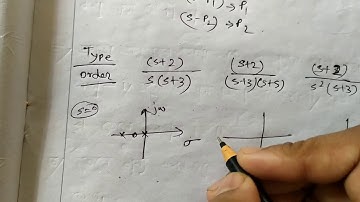 (s-P₁) → P₁
(s-P₂) → P₂
Type/order (s+2)/s(s+3) (s+2)/(s-13)(s+5) (s+2)/s²(s+3)
s=0 jω
σ